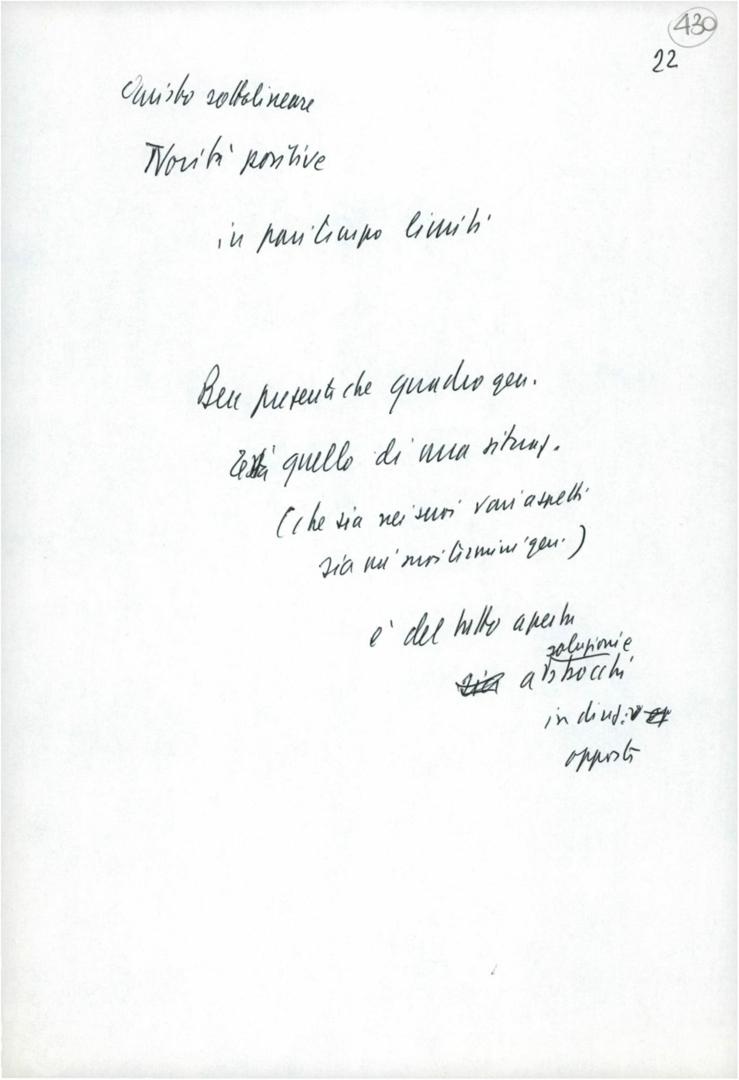 430
22
sottolineare
Novità positive
in pari tempo limiti
Ben presenti che quadro gen.
quello di una situaz.
(che sia nei suoi vari aspetti
sia nei suoi termini gen.)
è del tutto aperta
soluzioni e
a sbocchi
in direz.
opposti